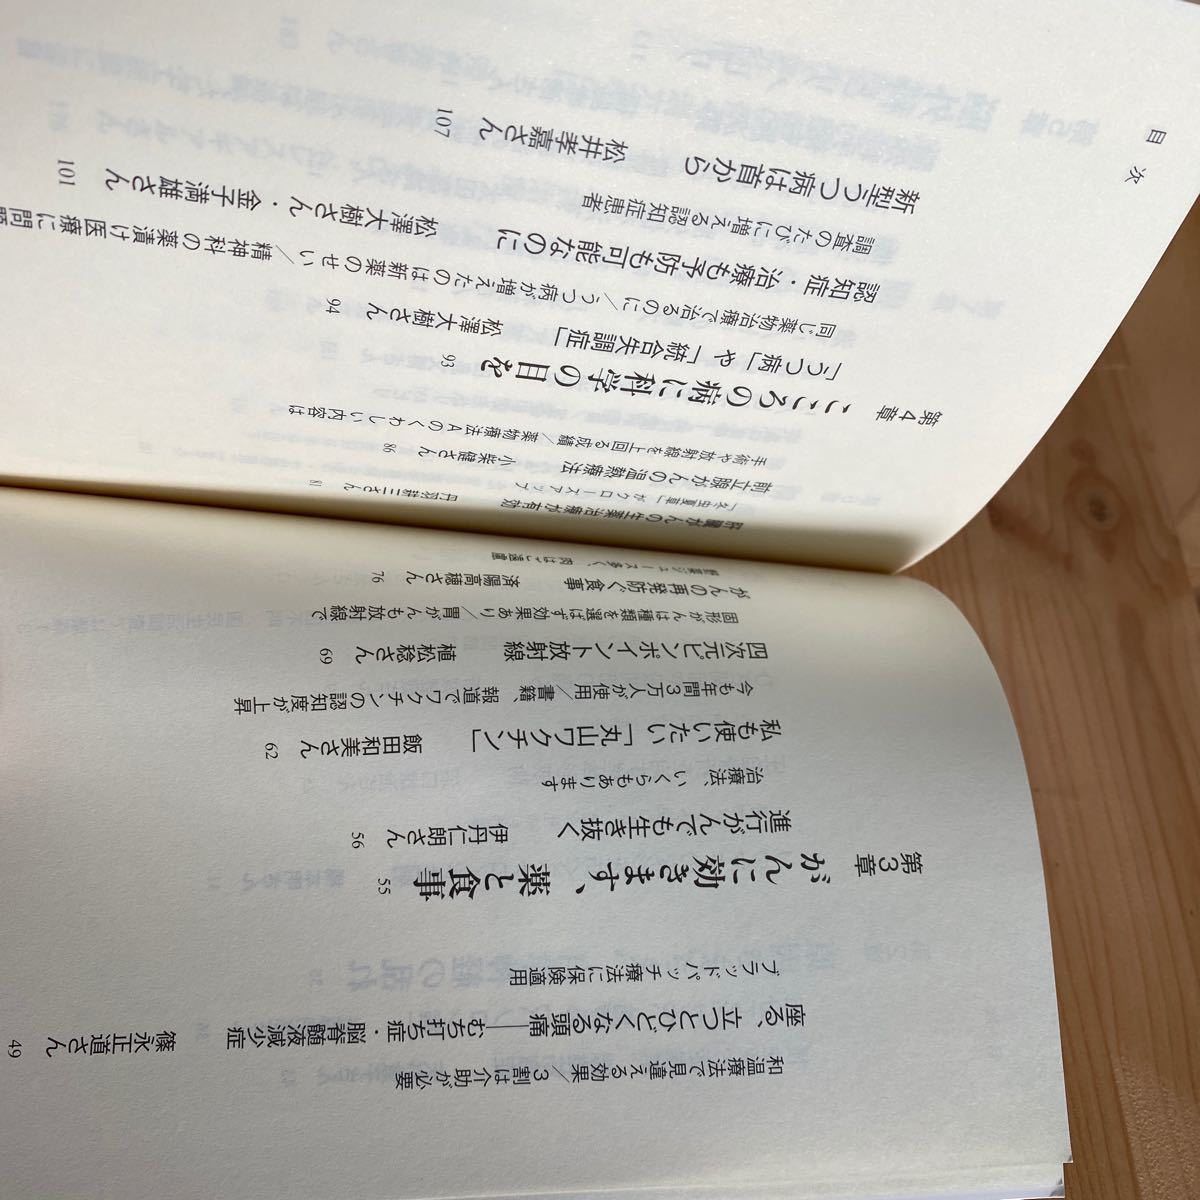 和温療法で見違える効果/3割は介助が必要
座る、立つとひどくなる頭痛――むち打ち症・脳脊髄液減少症 篠永正道さん 49
ブラッドパッチ療法に保険適用
第3章 がんに効きます、薬と食事 55
進行がんでも生き抜く 伊丹仁朗さん 56
治療法、いくらもあります
私も使いたい「丸山ワクチン」 飯田和美さん 62
今も年間3万人が使用/書籍、報道でワクチンの認知度が上昇
四次元ピンポイント放射線 植松稔さん 69
固形がんは種類を選ばず効果あり/胃がんも放射線で
がんの再発防ぐ食事 済陽高穂さん 76
野菜ジュース多く、肉はご遠慮
肝臓がんの生薬治療が有効 さん 81
「冬虫夏草」がクローズアップ
前立腺がんの温熱療法 小柴健さん 86
手術や放射線を上回る成績/薬物療法Aのくわしい内容は
第4章 こころの病に科学の目を 93
「うつ病」や「統合失調症」 松澤大樹さん 94
同じ薬物治療で治るのに/うつ病が増えたのは新薬のせい/精神科の薬漬け医療に問題
認知症・治療も予防も可能なのに 松澤大樹さん・金子満雄さん 101
調査のたびに増える認知症患者
新型うつ病は首から 松井孝嘉さん 107
目次